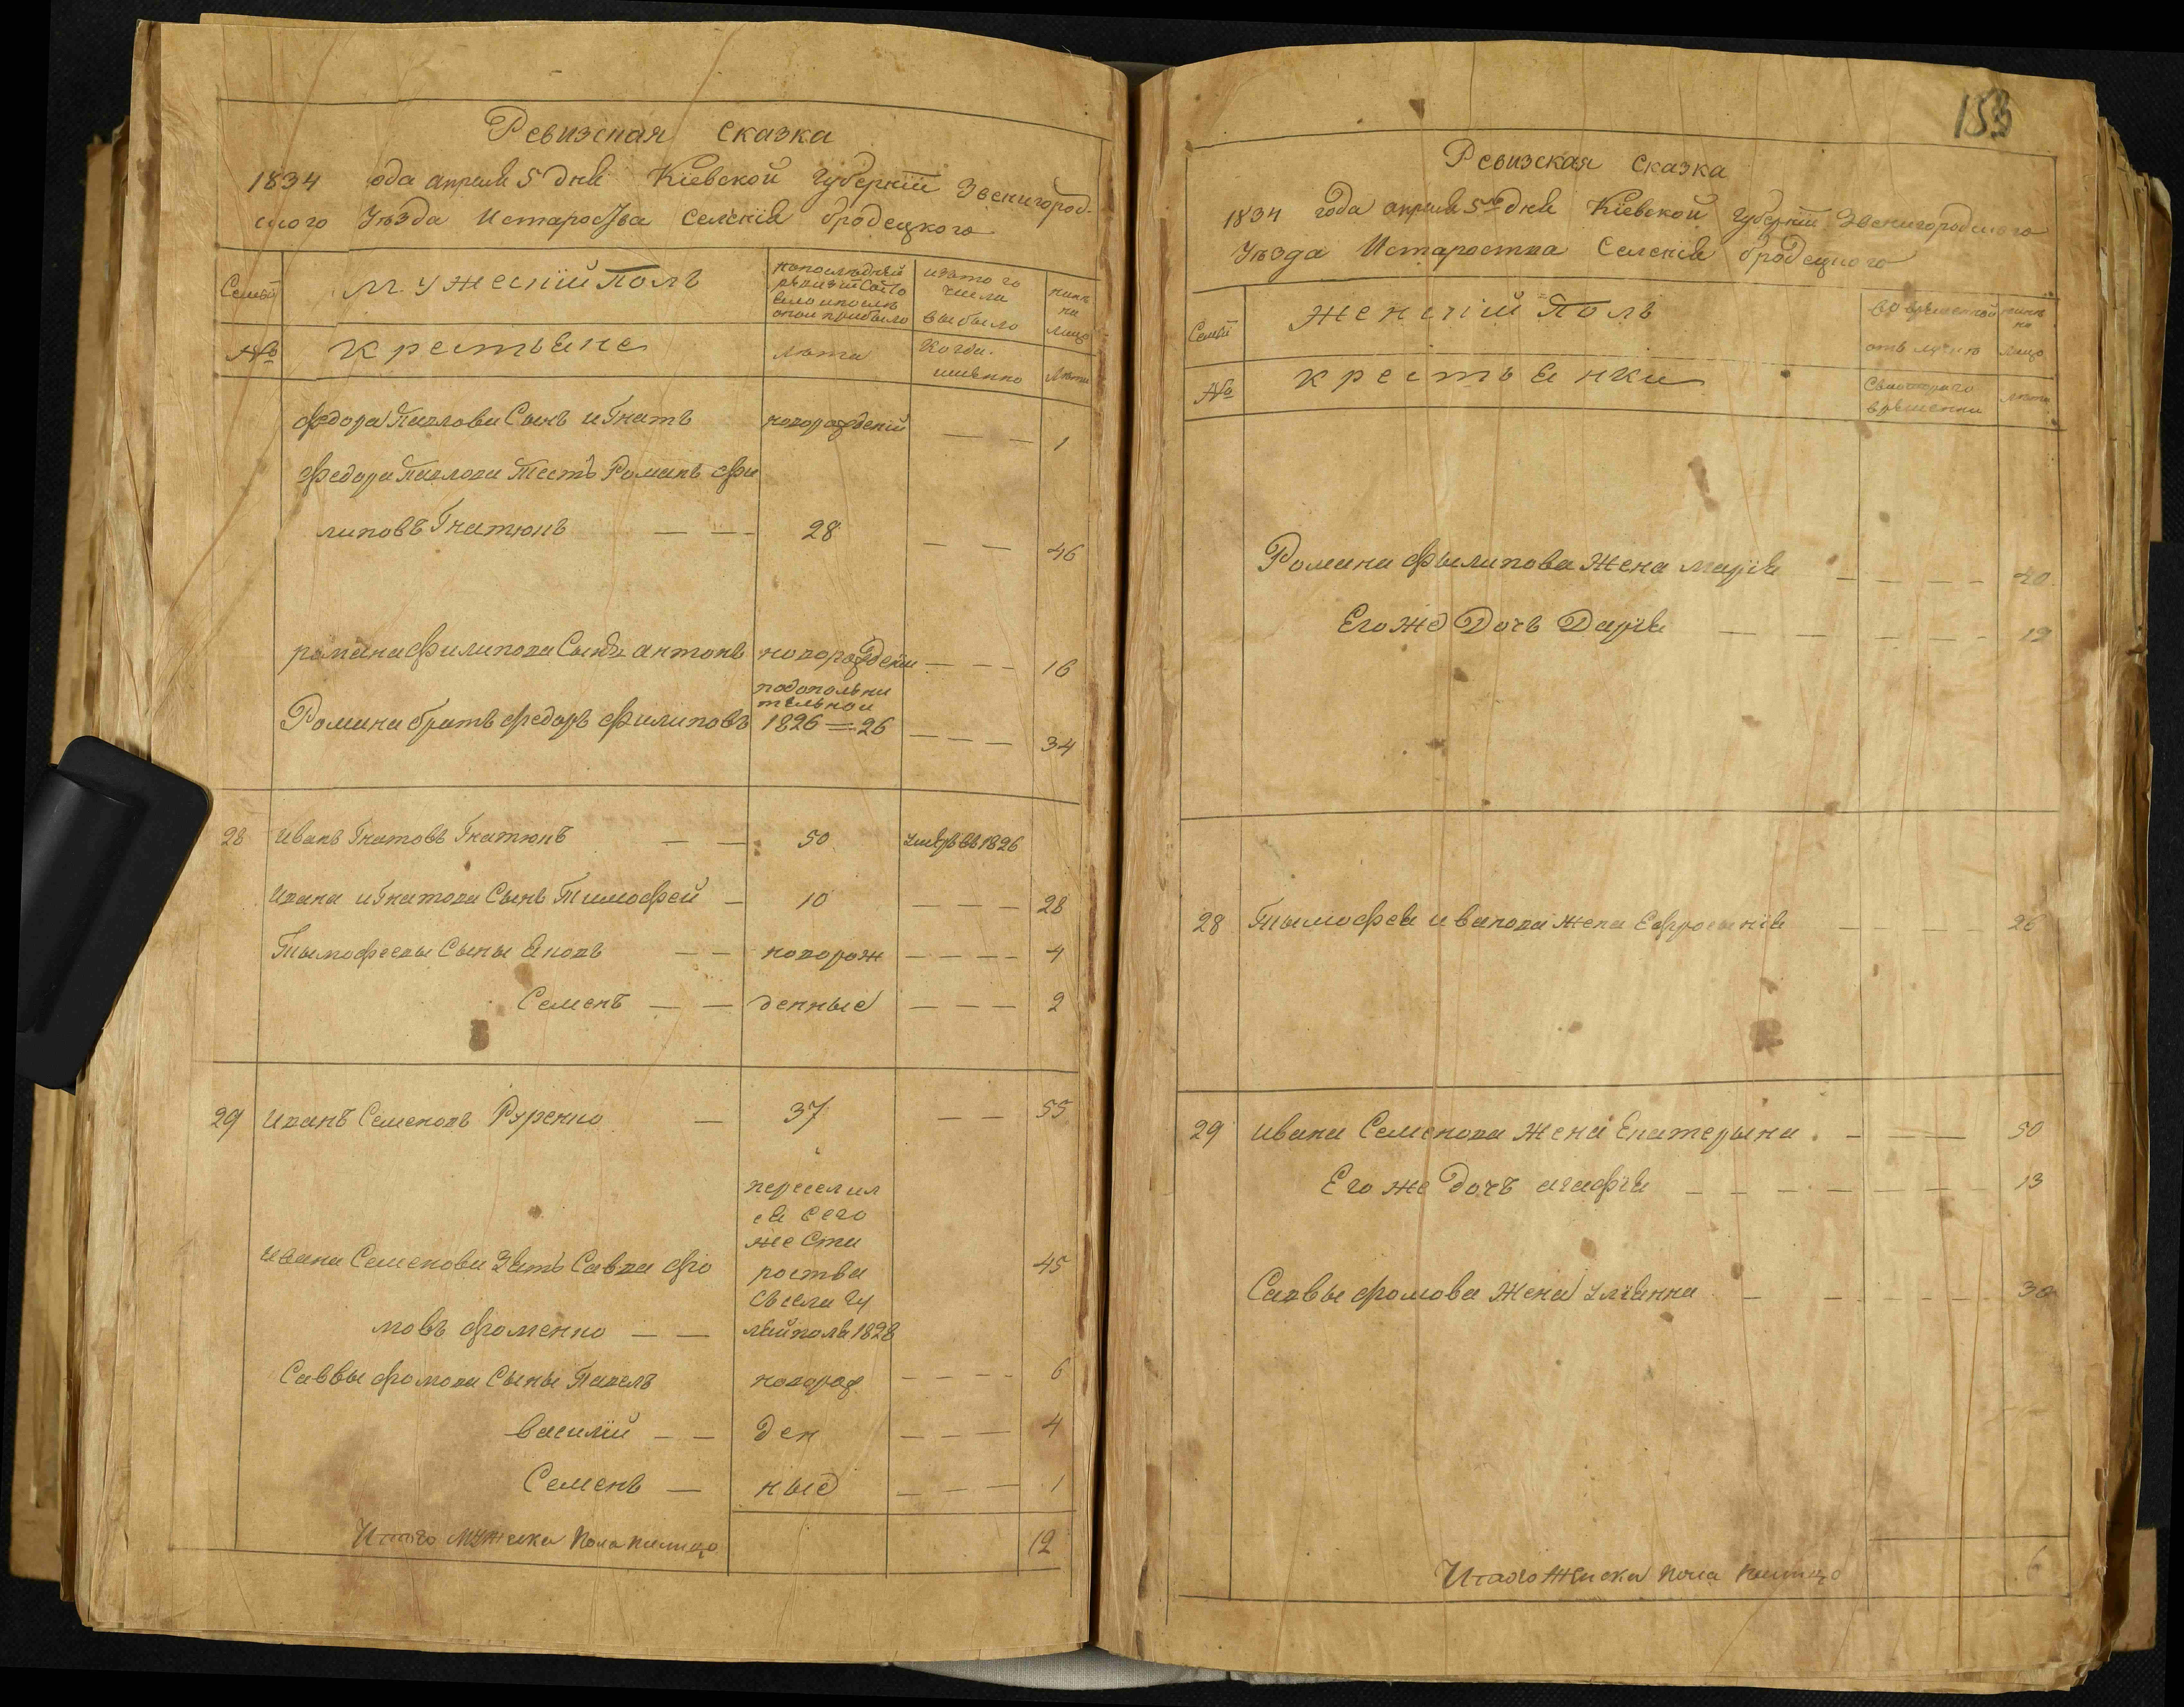 Ревизская сказка
1834 ода апреля 5 дня Кіевской Губерніи Звенигород-
ского Уезда Истароства Селскія бродецкого
Семьи
мужескій Полъ
напоследней
ревизіи Состо
яло и после
оной прибыло
изъ того
числа
выбыло
нынѣ
на
лицо
№
крестьяне
лета
Когда
именно
лета
Федора Павлова Сынъ игнатъ новорожденій — — 1
Федора Павлова Тесть Романъ Фи
липовъ Гнатюкъ — — 28 — — 46
романа Филипова Сынъ антонъ новорожденій — — — 16
подополни
тельной
Романа братъ Федоръ Филиповъ 1826 = 26 — — — 34
28 иванъ Гнатовъ Гнатюкъ — — 50 умеръ въ 1826
Ивана игнатова Сынъ Тимофей — 10 — — — 28
Тымофеевы Сыны Яковъ — — новорож — — — — 4
Семенъ — — денные — — — 2
29 иванъ Семеновъ Руренко — 37 — — 55
переселил
ся сего
же Ста
роства
Ивана Семенова Зять Савва Фо 45
съ села Гу
мовъ Фоменко — — ляйполя 1828
Саввы Фомова Сыны Павелъ новорож — — — — 6
василій — — ден — — — 4
Семенъ — ные — — — 1
Итого мужеска пола налицо 12
153
Ревизская сказка
1834 года апреля 5го дня Кіевской Губерніи Звенигородского
Уезда Истароства Селскія бродецкого
Семьи
женскій Полъ
во временной
отлучке
нынѣ
на
лицо
№
крестьянки
Съ которого
времени
лета
Романа Филипова Жена марія — — — — 40
Его же Дочь Дарія — — — — — — 12
28 Тымофея иванова жена Ефросинія — — — — 26
29 ивана Семенова Жена Екатерына — — — 50
Его же дочъ агафія — — — — — — 13
Саввы Фомова Жена Уліянна — — — — — 30
Итого женска пола налицо 6